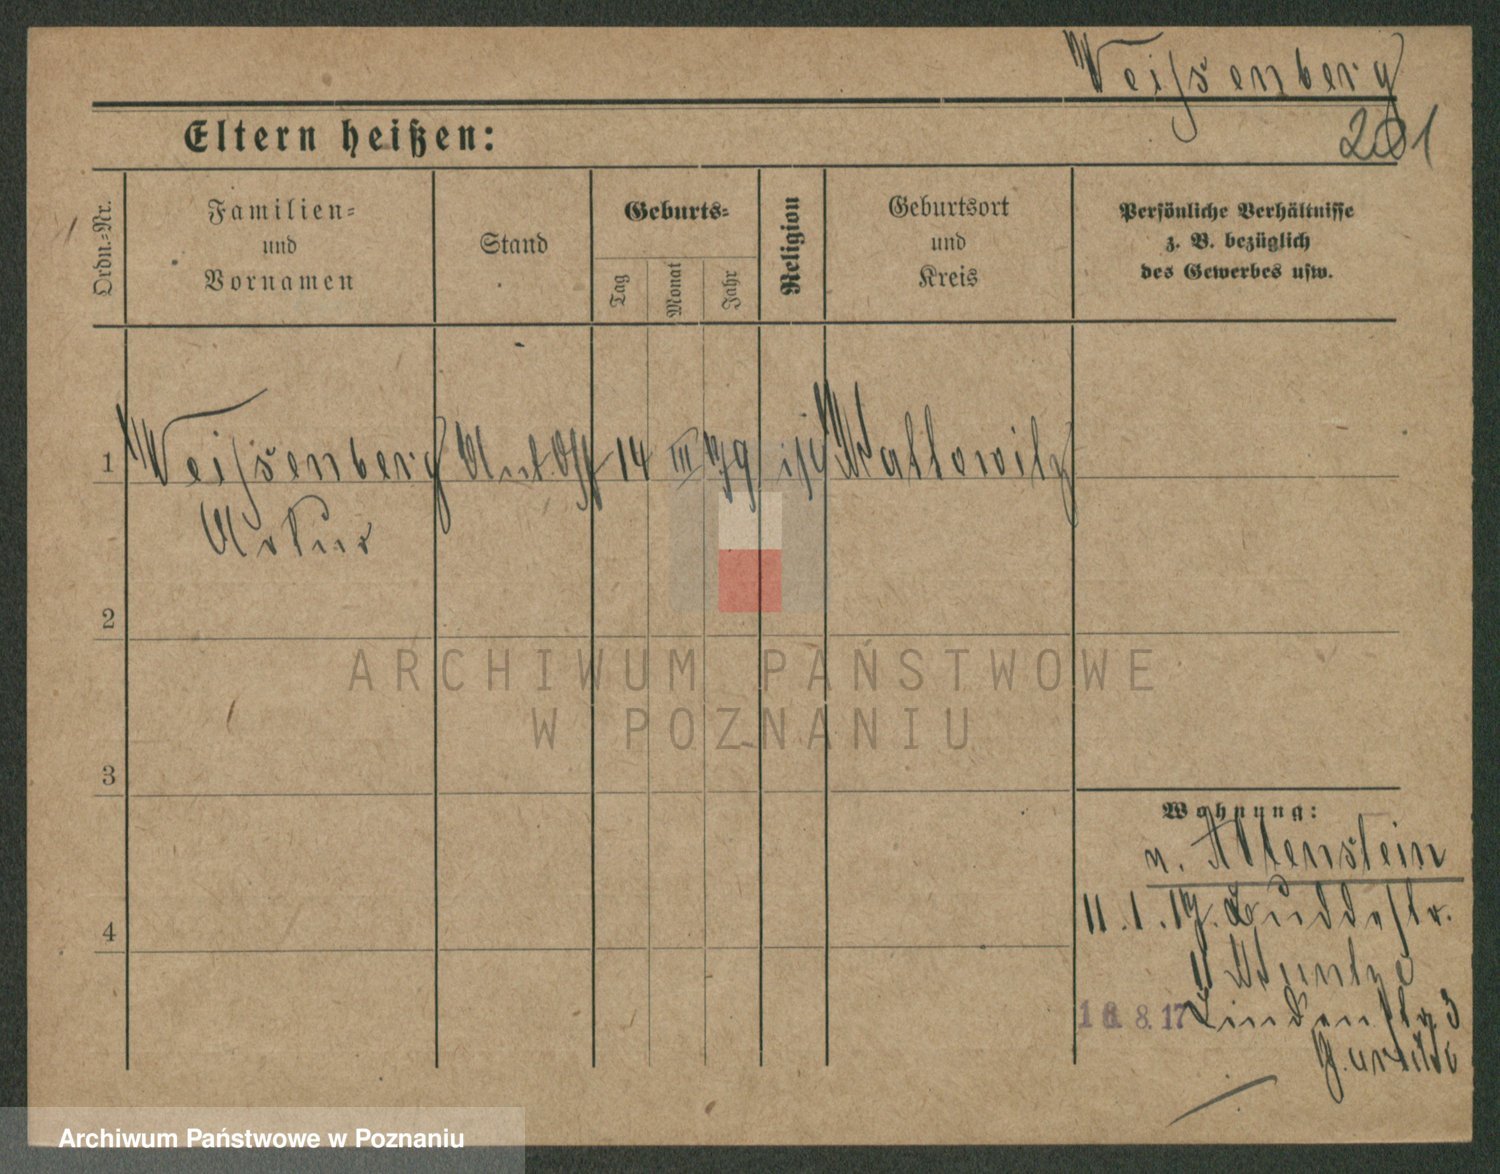 Weißenberg
201
Eltern heißen:
Ordn.-Nr.
Familien-
und
Vornamen
Stand
Geburts-
Tag
Monat
Jahr
Religion
Geburtsort
und
Kreis
Persönliche Verhältnisse
z. B. bezüglich
des Gewerbes usw.
1 Weißenberg 14 III 79 Kattowitz
Artur
2
3
4
ARCHIWUM PAŃSTWOWE
W POZNANIU
Wohnung:
v. Allenstein
11.1.17. Buddestr.
11 Kuntze
8.17 Lindenstr. 3
Archiwum Państwowe w Poznaniu